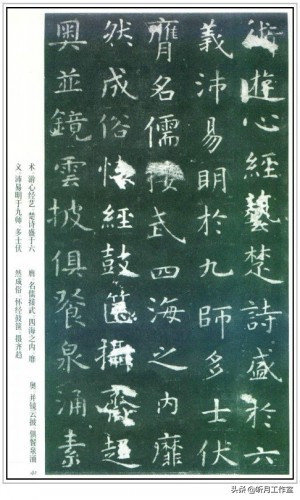 術遊心經藝楚詩盛於六
義沛易明於九師多士伏
膺名儒接武四海之內靡
然成俗懷經鼓篋攝齊趍
奧並鏡雲披俱飡泉涌素
术 游心经艺 楚诗盛于六
义 沛易明于九师 多士伏
膺 名儒接武 四海之内 靡
然成俗 怀经鼓箧 摄齐趋
奥 并镜云披 俱餐泉涌
头条 @听月工作室